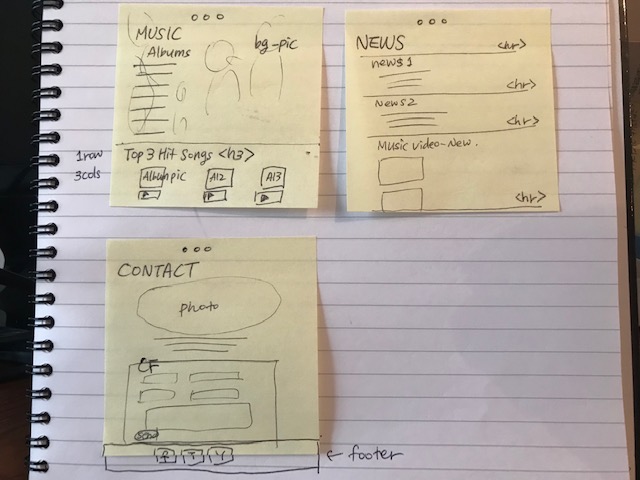 MUSIC
Albums
bg-pic
1row
3cols
Top 3 Hit Songs <h3>
Album pic
Al2
Al3
NEWS
<hr>
news1
<hr>
News2
<hr>
Music video-New.
<hr>
CONTACT
photo
CF
Send
f T Y
← footer